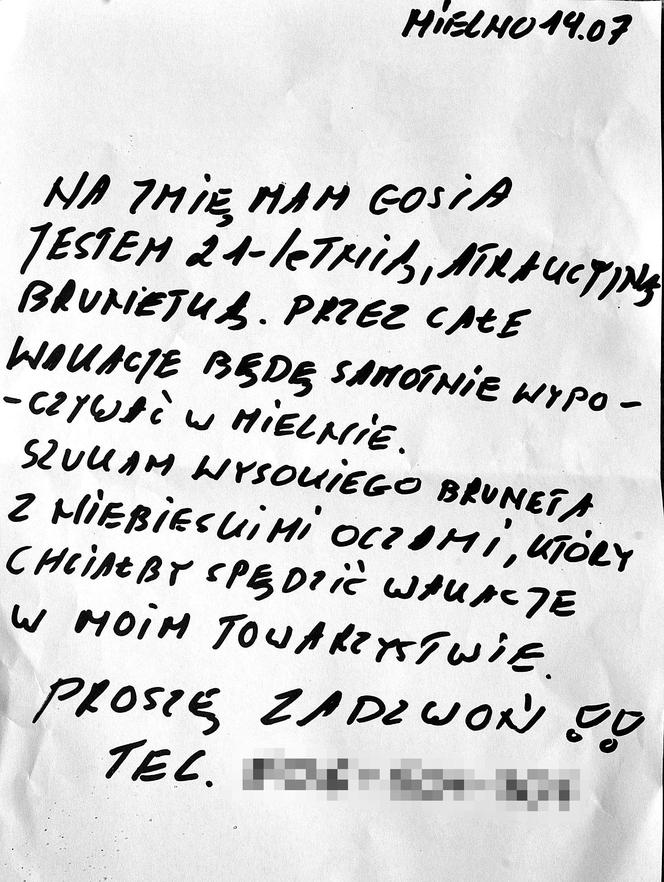 MIELNO 14.07
NA IMIĘ MAM GOSIA
JESTEM 21-leTNIĄ, ATRAKCYJNĄ
BRUNETKĄ. PRZEZ CAŁE
WAKACJE BĘDĘ SAMOTNIE WYPO-
-CZYWAĆ W MIELNIE.
SZUKAM WYSOKIEGO BRUNETA
Z NIEBIESKIMI OCZAMI, KTÓRY
CHCIAŁBY SPĘDZIĆ WAKACJE
W MOIM TOWARZYSTWIE.
PROSZĘ ZADZWOŃ !!
TEL.